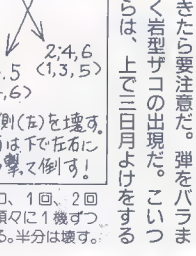 きたら要注意だ 弾をバラま
く岩型ザコの出現だ。こいつ
らは、上で三日月よけをする
2,4,6
.5 (1,3,5)
,6)
側(左)を壊す。
は下で左右に
撃って倒す!
コ、1回、2回
順々に1機ずつ
る。半分は壊す。